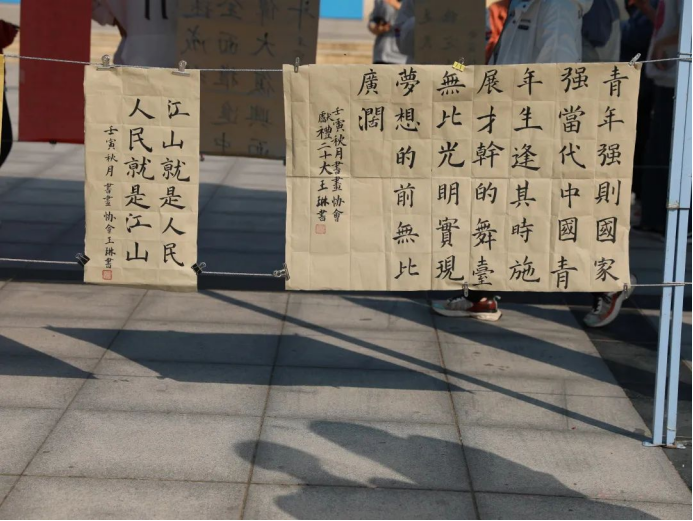 青年强則國家
强當代中國青
年生逢其時施
展才幹的舞臺
無比光明實現
夢想的前無比
廣闊
壬寅秋月書畫協會
獻禮二十大王琳書
江山就是人民
人民就是江山
壬寅秋月 書畫協會王琳書
偉大復興而
全面推進中